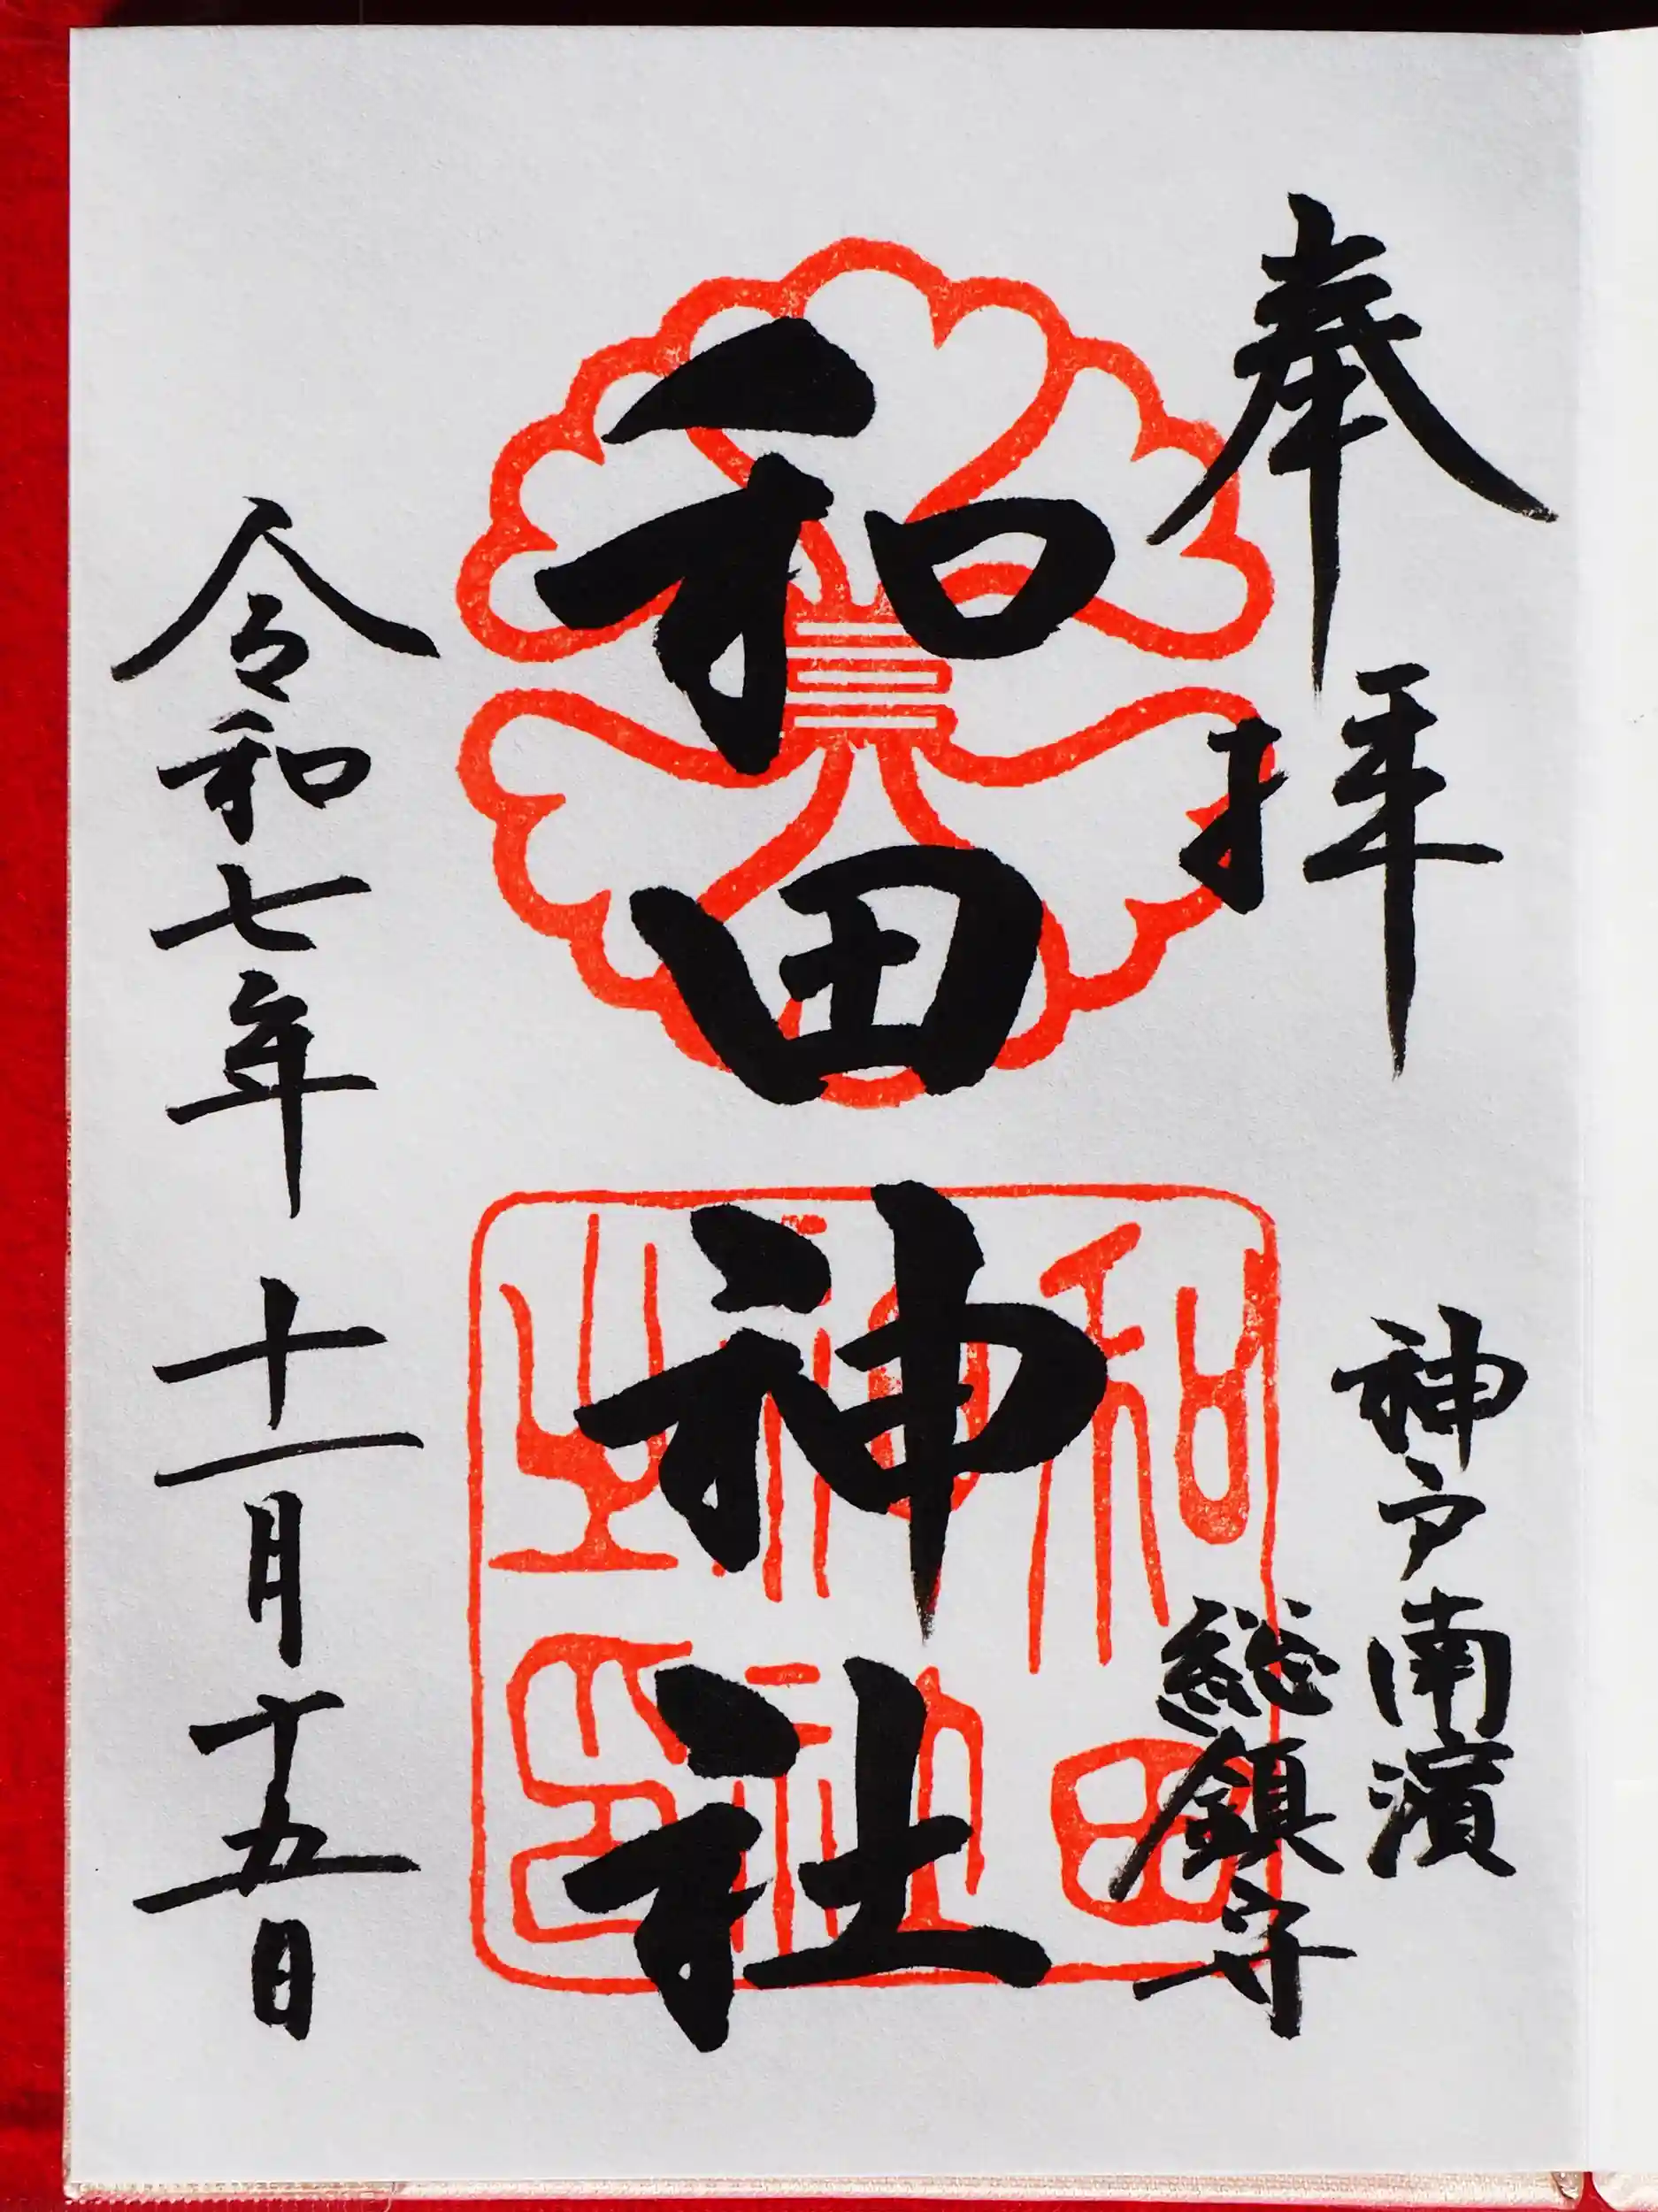 奉拝
神戸南濱
総鎮守
和田神社
和田
神社
之印
令和七年十一月十五日